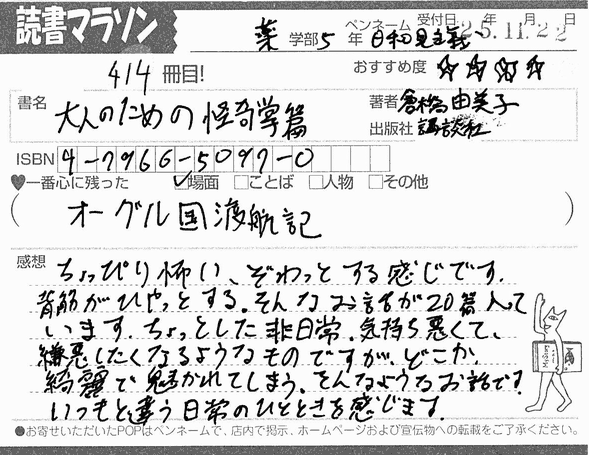 読書マラソン
薬 学部 5 年 ペンネーム 日和見主義 受付日 25年.11月.22日
414 冊目! おすすめ度 ☆☆☆☆
書名 大人のための怪奇掌篇
著者 倉橋由美子
出版社 講談社
ISBN 4-7966-5097-0
♥一番心に残った ☑場面 □ことば □人物 □その他
(オーグル国渡航記)
感想 ちょっぴり怖い、ぞわっとする感じです.
背筋がひやっとする.そんなお話が20篇入って
います.ちょっとした非日常.気持ち悪くて、
嫌悪したくなるようなものですが、どこか
綺麗で魅かれてしまう.そんなようなお話です.
いつもと違う日常のひとときを感じます.
●お寄せいただいたPOPはペンネームで、店内で掲示、ホームページおよび宣伝物への転載をご了承ください。